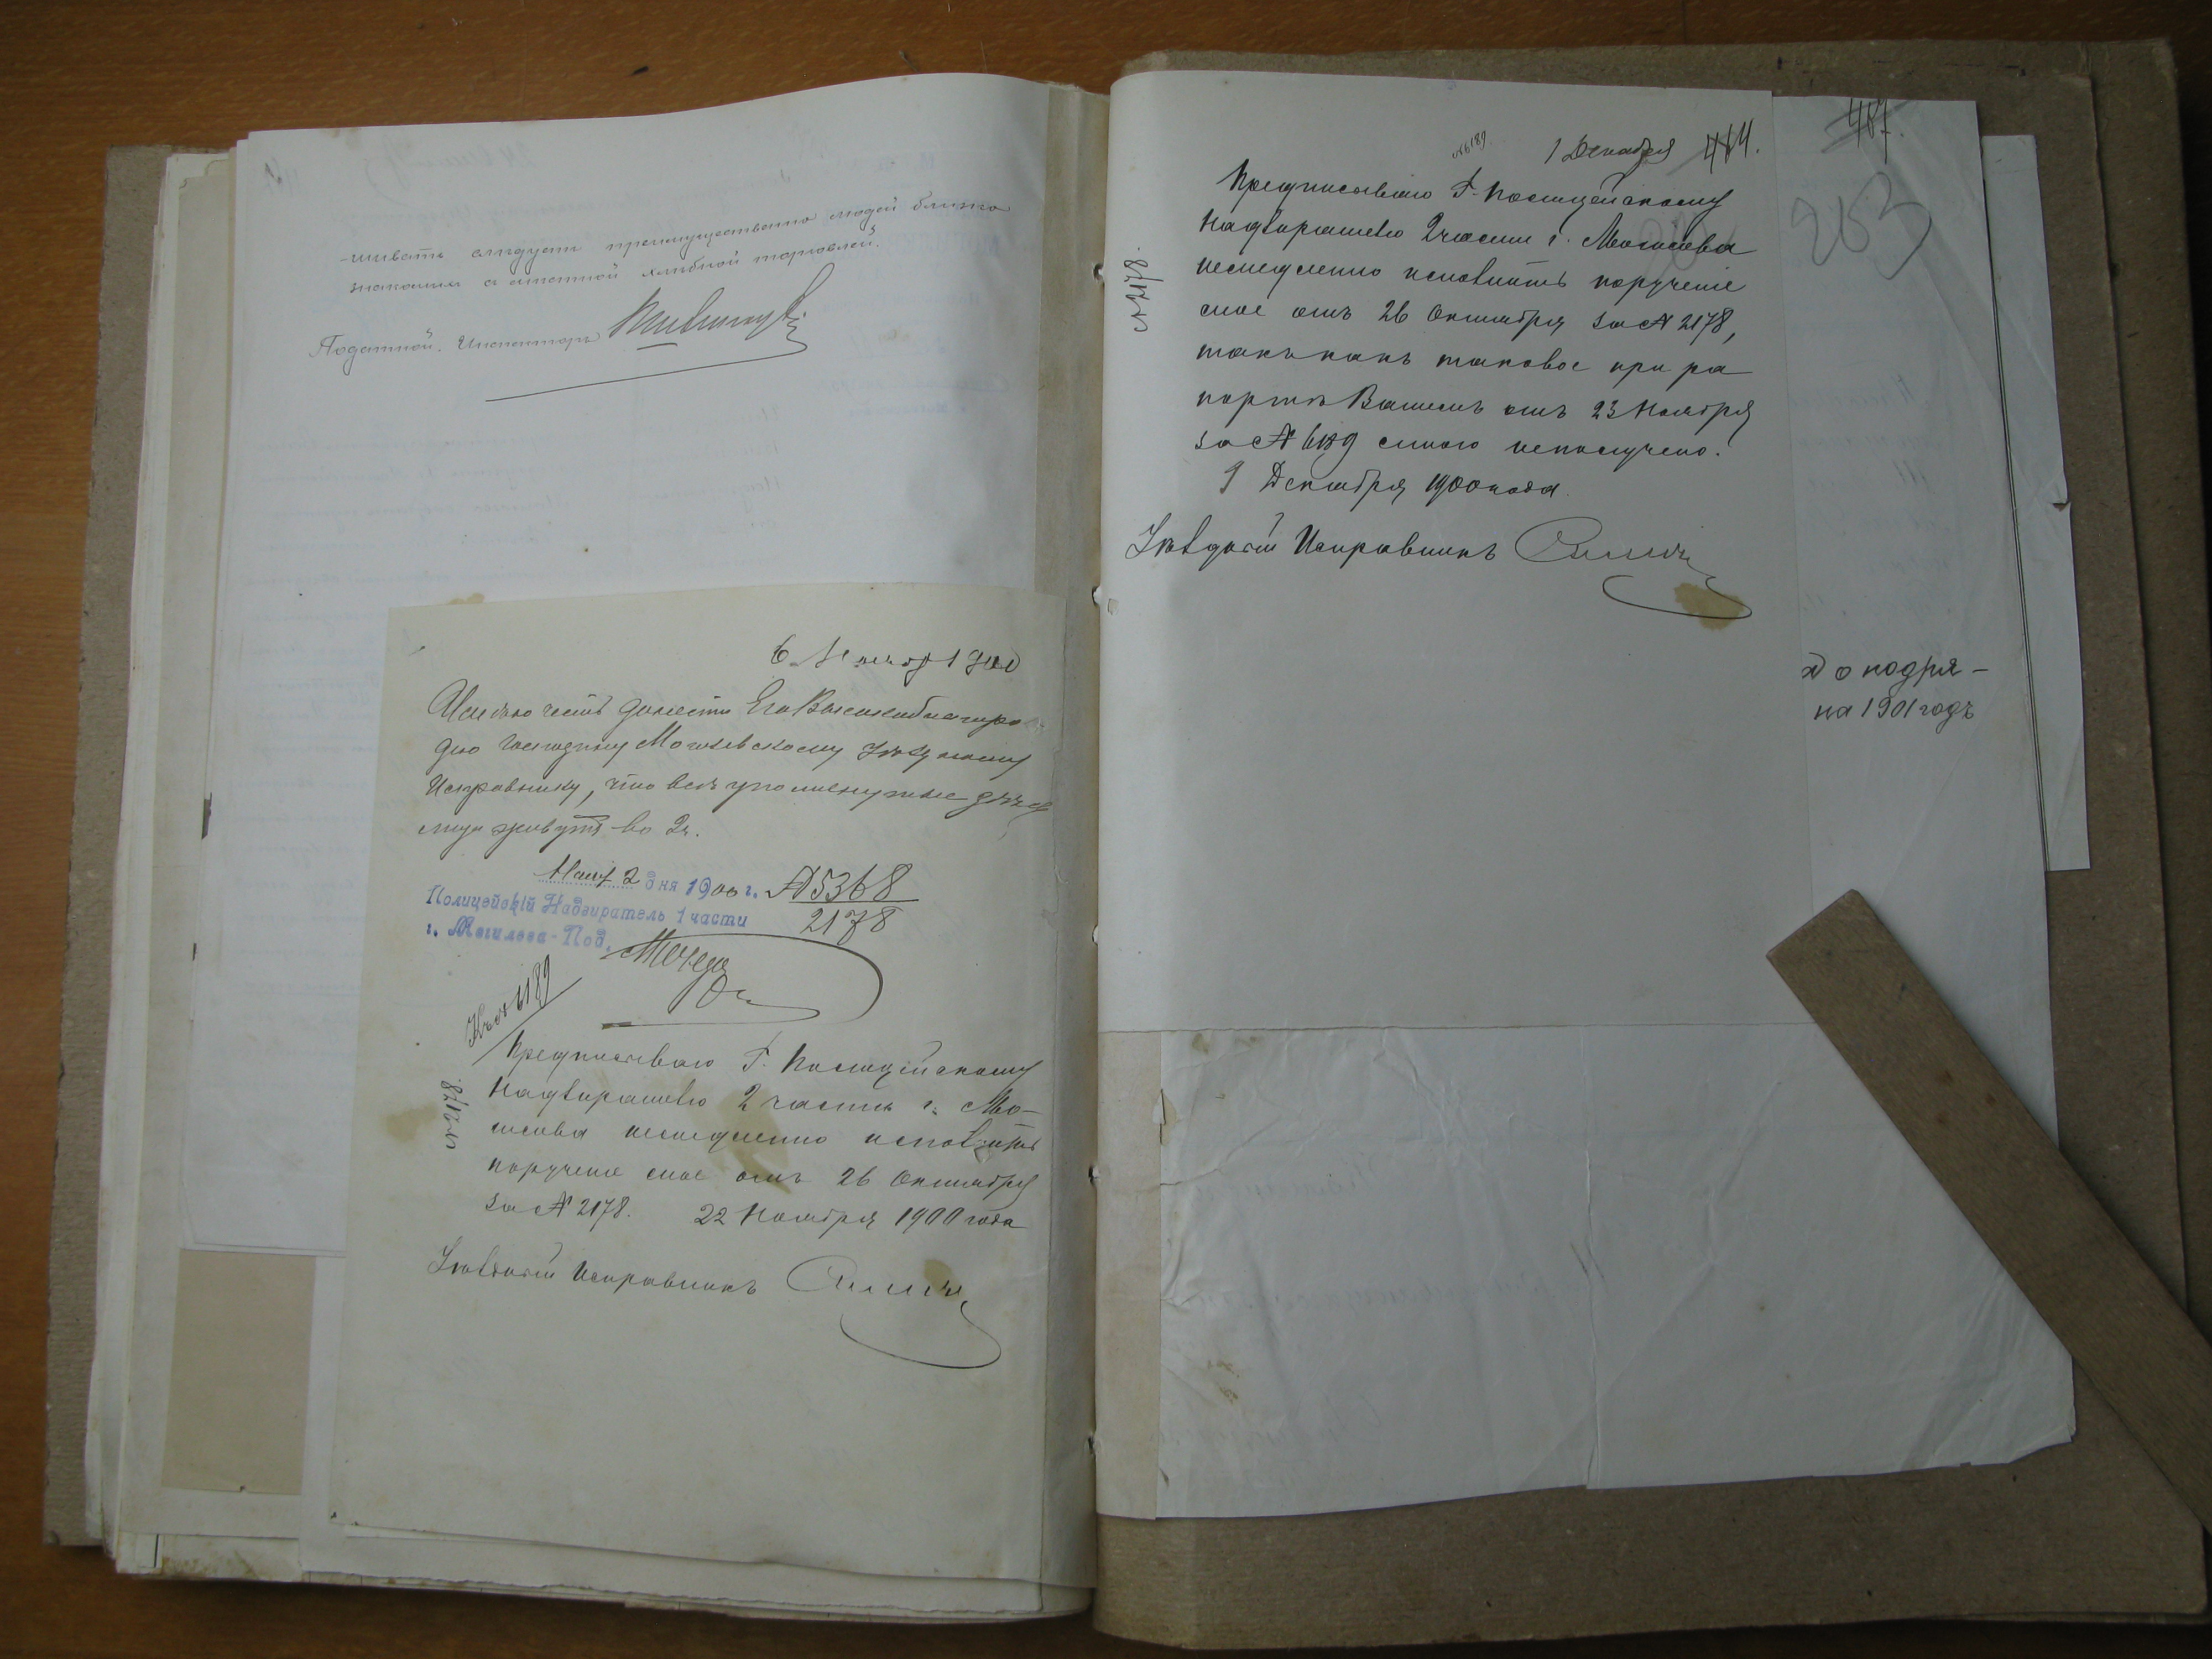 -шивать слѣдуетъ преимущественно людей близко
знакомыхъ съ мѣстной хлѣбной торговлей.
Податной Инспекторъ
6 Ноябр 1900
Имѣю честь донести Его Высокоблагоро
дію Господину Могилевскому Уѣздному
Исправнику, что всѣ упомянутые
лица живутъ во 2ч.
Нояб 2 дня 1900 г. №5368
2178
Полицейскій Надзиратель 1 части
г. Могилева-Под.
Къ № 6189
№ 2178.
Предписываю Г. Полицейскому
Надзирателю 2 части г. Мо-
гилева немедленно исполнить
порученіе мое отъ 26 Октября
за № 2178. 22 Ноября 1900 года
Уѣздный Исправникъ
№6189. 1 Декабря 414.
№2178.
Предписываю Г. Полицейскому
Надзирателю 2 части г. Могилева
немедленно исполнить порученіе
мое отъ 26 Октября за № 2178,
такъ какъ таковое при ра
портѣ Вашемъ отъ 23 Ноября
за № 6189 мною неполучено.
9 Декабря 1900 года.
Уѣздный Исправникъ
407.
263
о подря-
на 1901 годъ